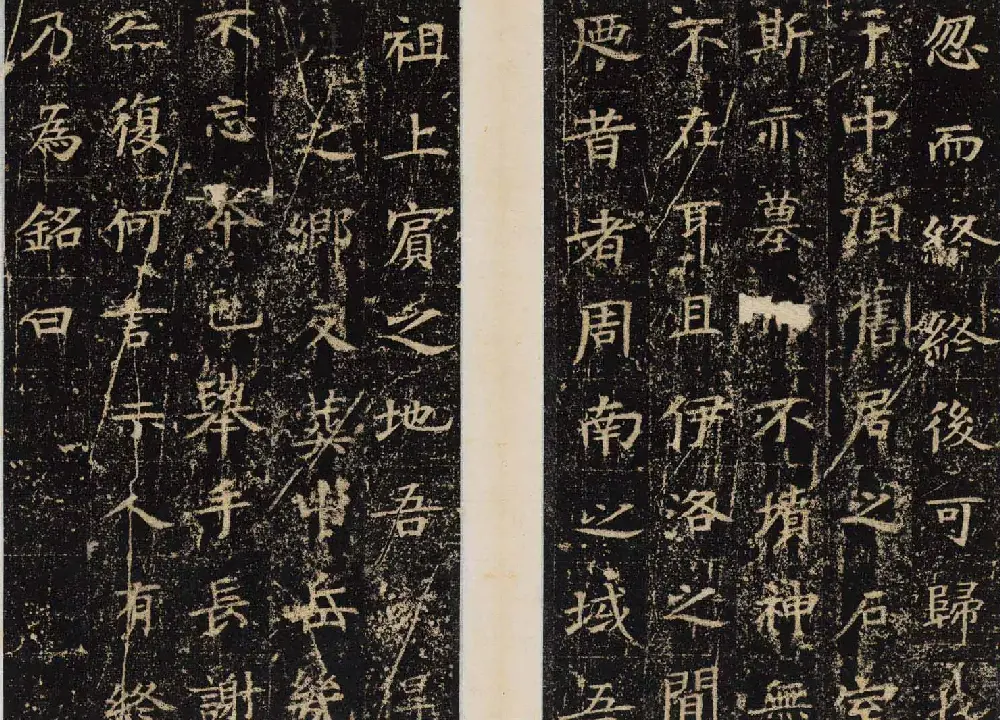 忽而終終後可歸我
于中頂舊居之石室
斯亦墓而不墳神無
不在耳且伊洛之間
迺昔者周南以域吾
祖上賓之地吾得
之鄉又葬中岳幾
不忘本也舉手長謝
亦復何言示人有終
乃為銘曰